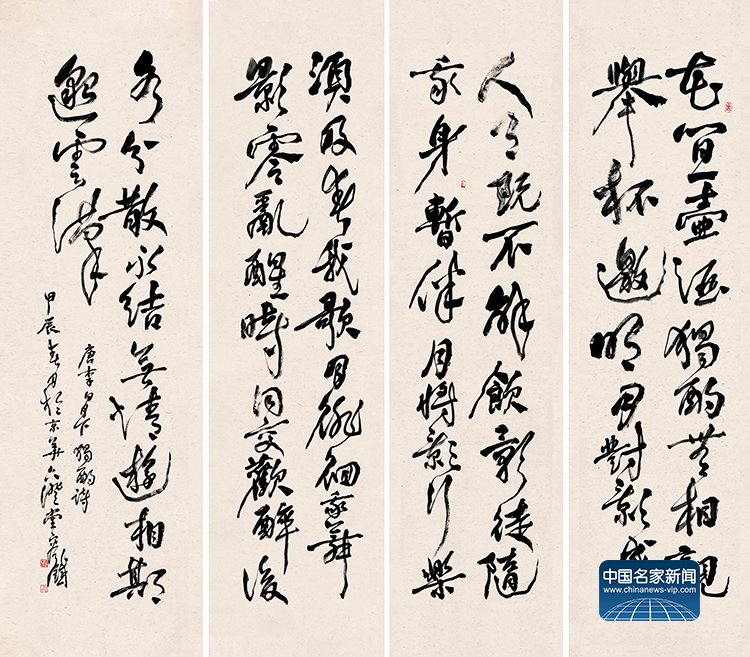 花間一壺酒獨酌無相親
舉杯邀明月對影成
人月既不解飲影徒隨
我身暫伴月將影行樂
須及春我歌月徘徊我舞
影零亂醒時同交歡醉後
各分散永結無情遊相期
邈雲漢
唐李白月下獨酌詩
甲辰春月於京華
中国名家新闻
www.chinanews-vip.com